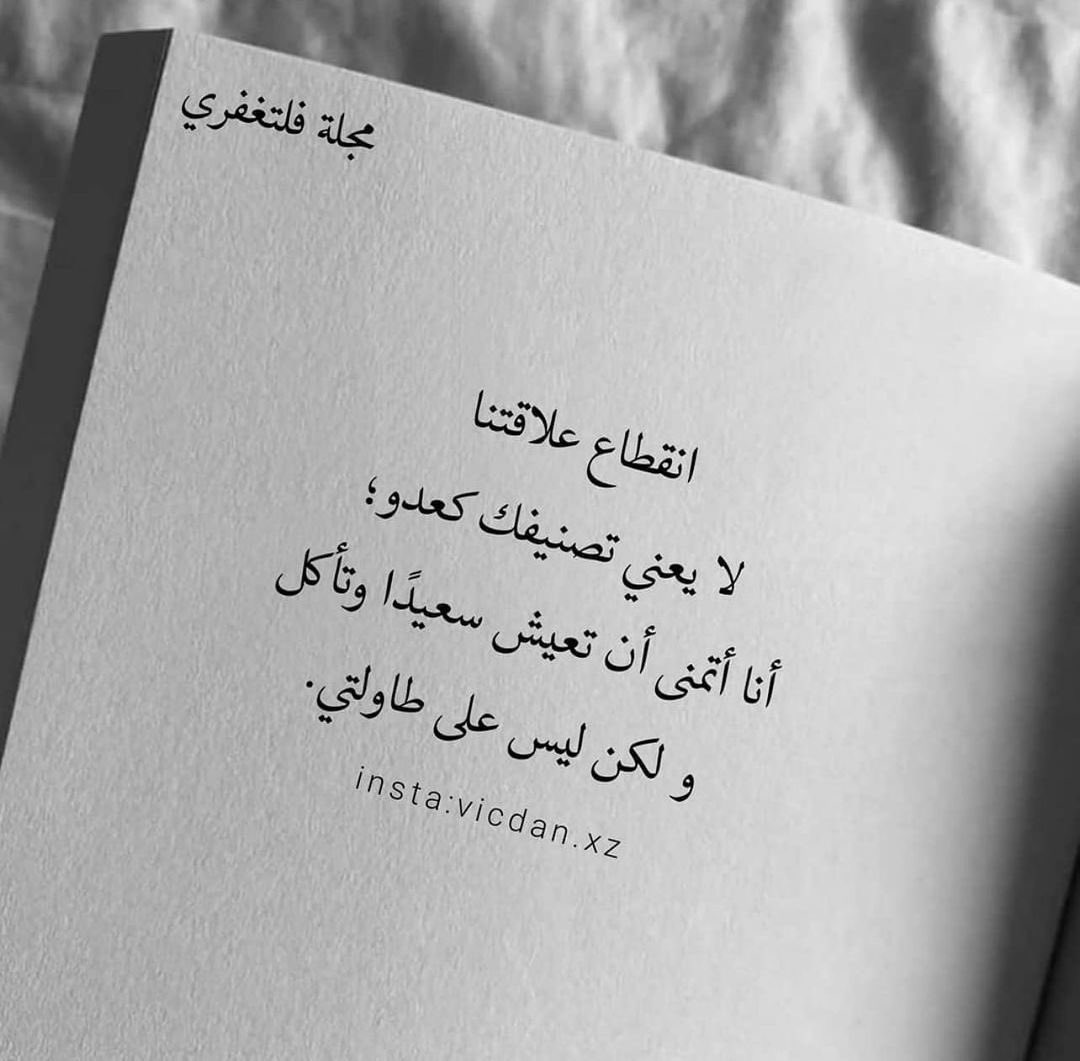 مجلة فلتغفري
انقطاع علاقتنا
لا يعني تصنيفك كعدو؛
أنا أتمنى أن تعيش سعيدًا وتأكل
و لكن ليس على طاولتي.
insta:vicdan.xz